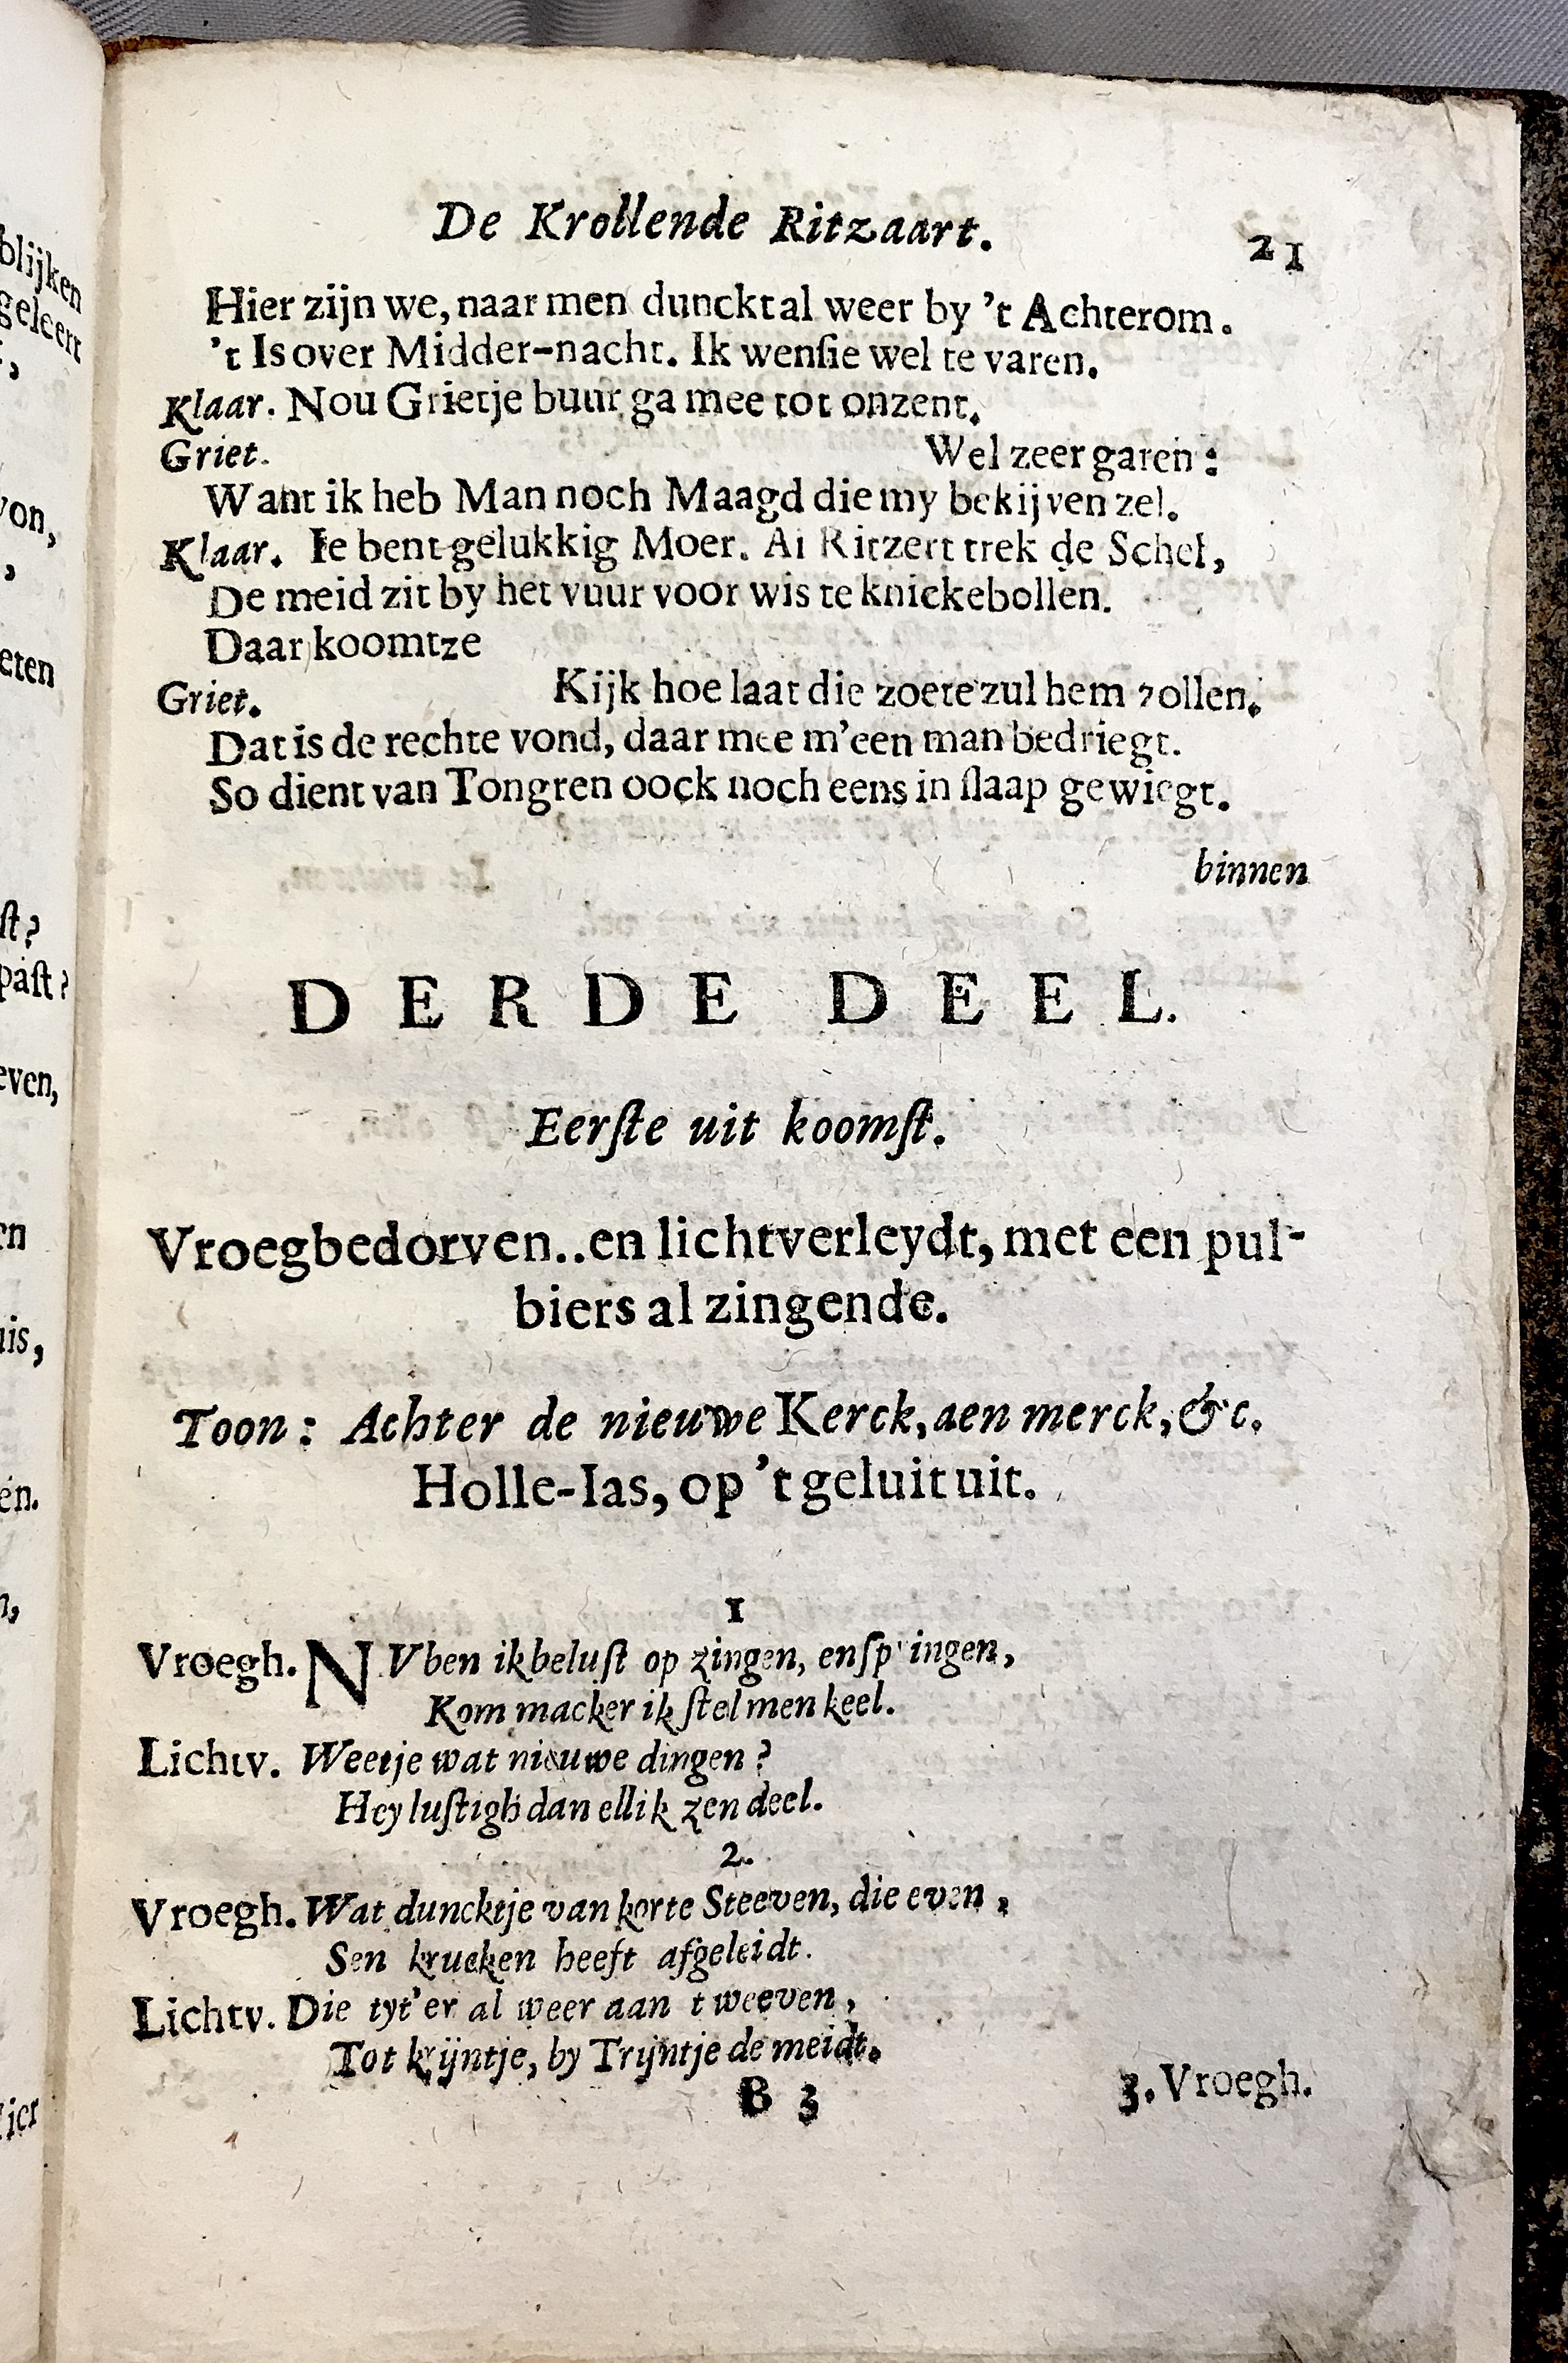 De Krollende Ritzaart. 21
Hier zijn we, naar men dunckt al weer by 't Achterom.
't Is over Midder-nacht. Ik wenſie wel te varen.
Klaar. Nou Grietje buur ga mee tot onzent.
Griet. Wel zeer garen:
Want ik heb Man noch Maagd die my bekijven zel.
Klaar. Ie bent gelukkig Moer. Ai Ritzert trek de Schel,
De meid zit by het vuur voor wis te knickebollen.
Daar koomtze
Griet. Kijk hoe laat die zoete zul hem zollen.
Dat is de rechte vond, daar mee m'een man bedriegt.
So dient van Tongren oock noch eens in ſlaap gewiegt.
binnen
DERDE DEEL.
Eerſte uit koomſt.
Vroegbedorven..en lichtverleydt, met een pul-
biers al zingende.
Toon: Achter de nieuwe Kerck, aen merck, &c.
Holle-Ias, op 't geluit uit.
1
Vroegh. NVben ik beluſt op zingen, en ſp ingen,
Kom macker ik ſtel men keel.
Lichtv. Weetje wat nieuwe dingen?
Hey luſtigh dan ellik zen deel.
2.
Vroegh. Wat duncktje van korte Steeven, die even,
Sen krucken heeft afgeleidt.
Lichtv. Die tyt'er al weer aan t weeven,
Tot krijntje, by Trijntje de meidt.
B 3 3. Vroegh.
blijken
geleert
von,
eten
ſt?
paſt?
even,
en
uis,
en.
n,
Hier